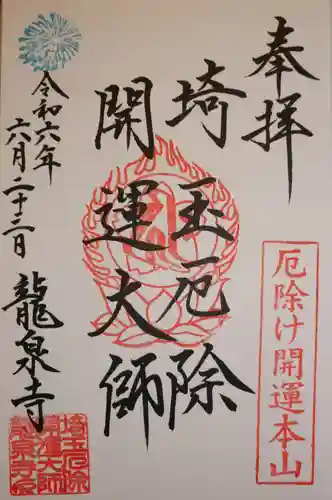 奉拝
厄除け開運本山
埼玉厄除
開運大師
令和六年
六月二十三日
龍泉寺
埼玉厄除
開運大師
龍泉寺